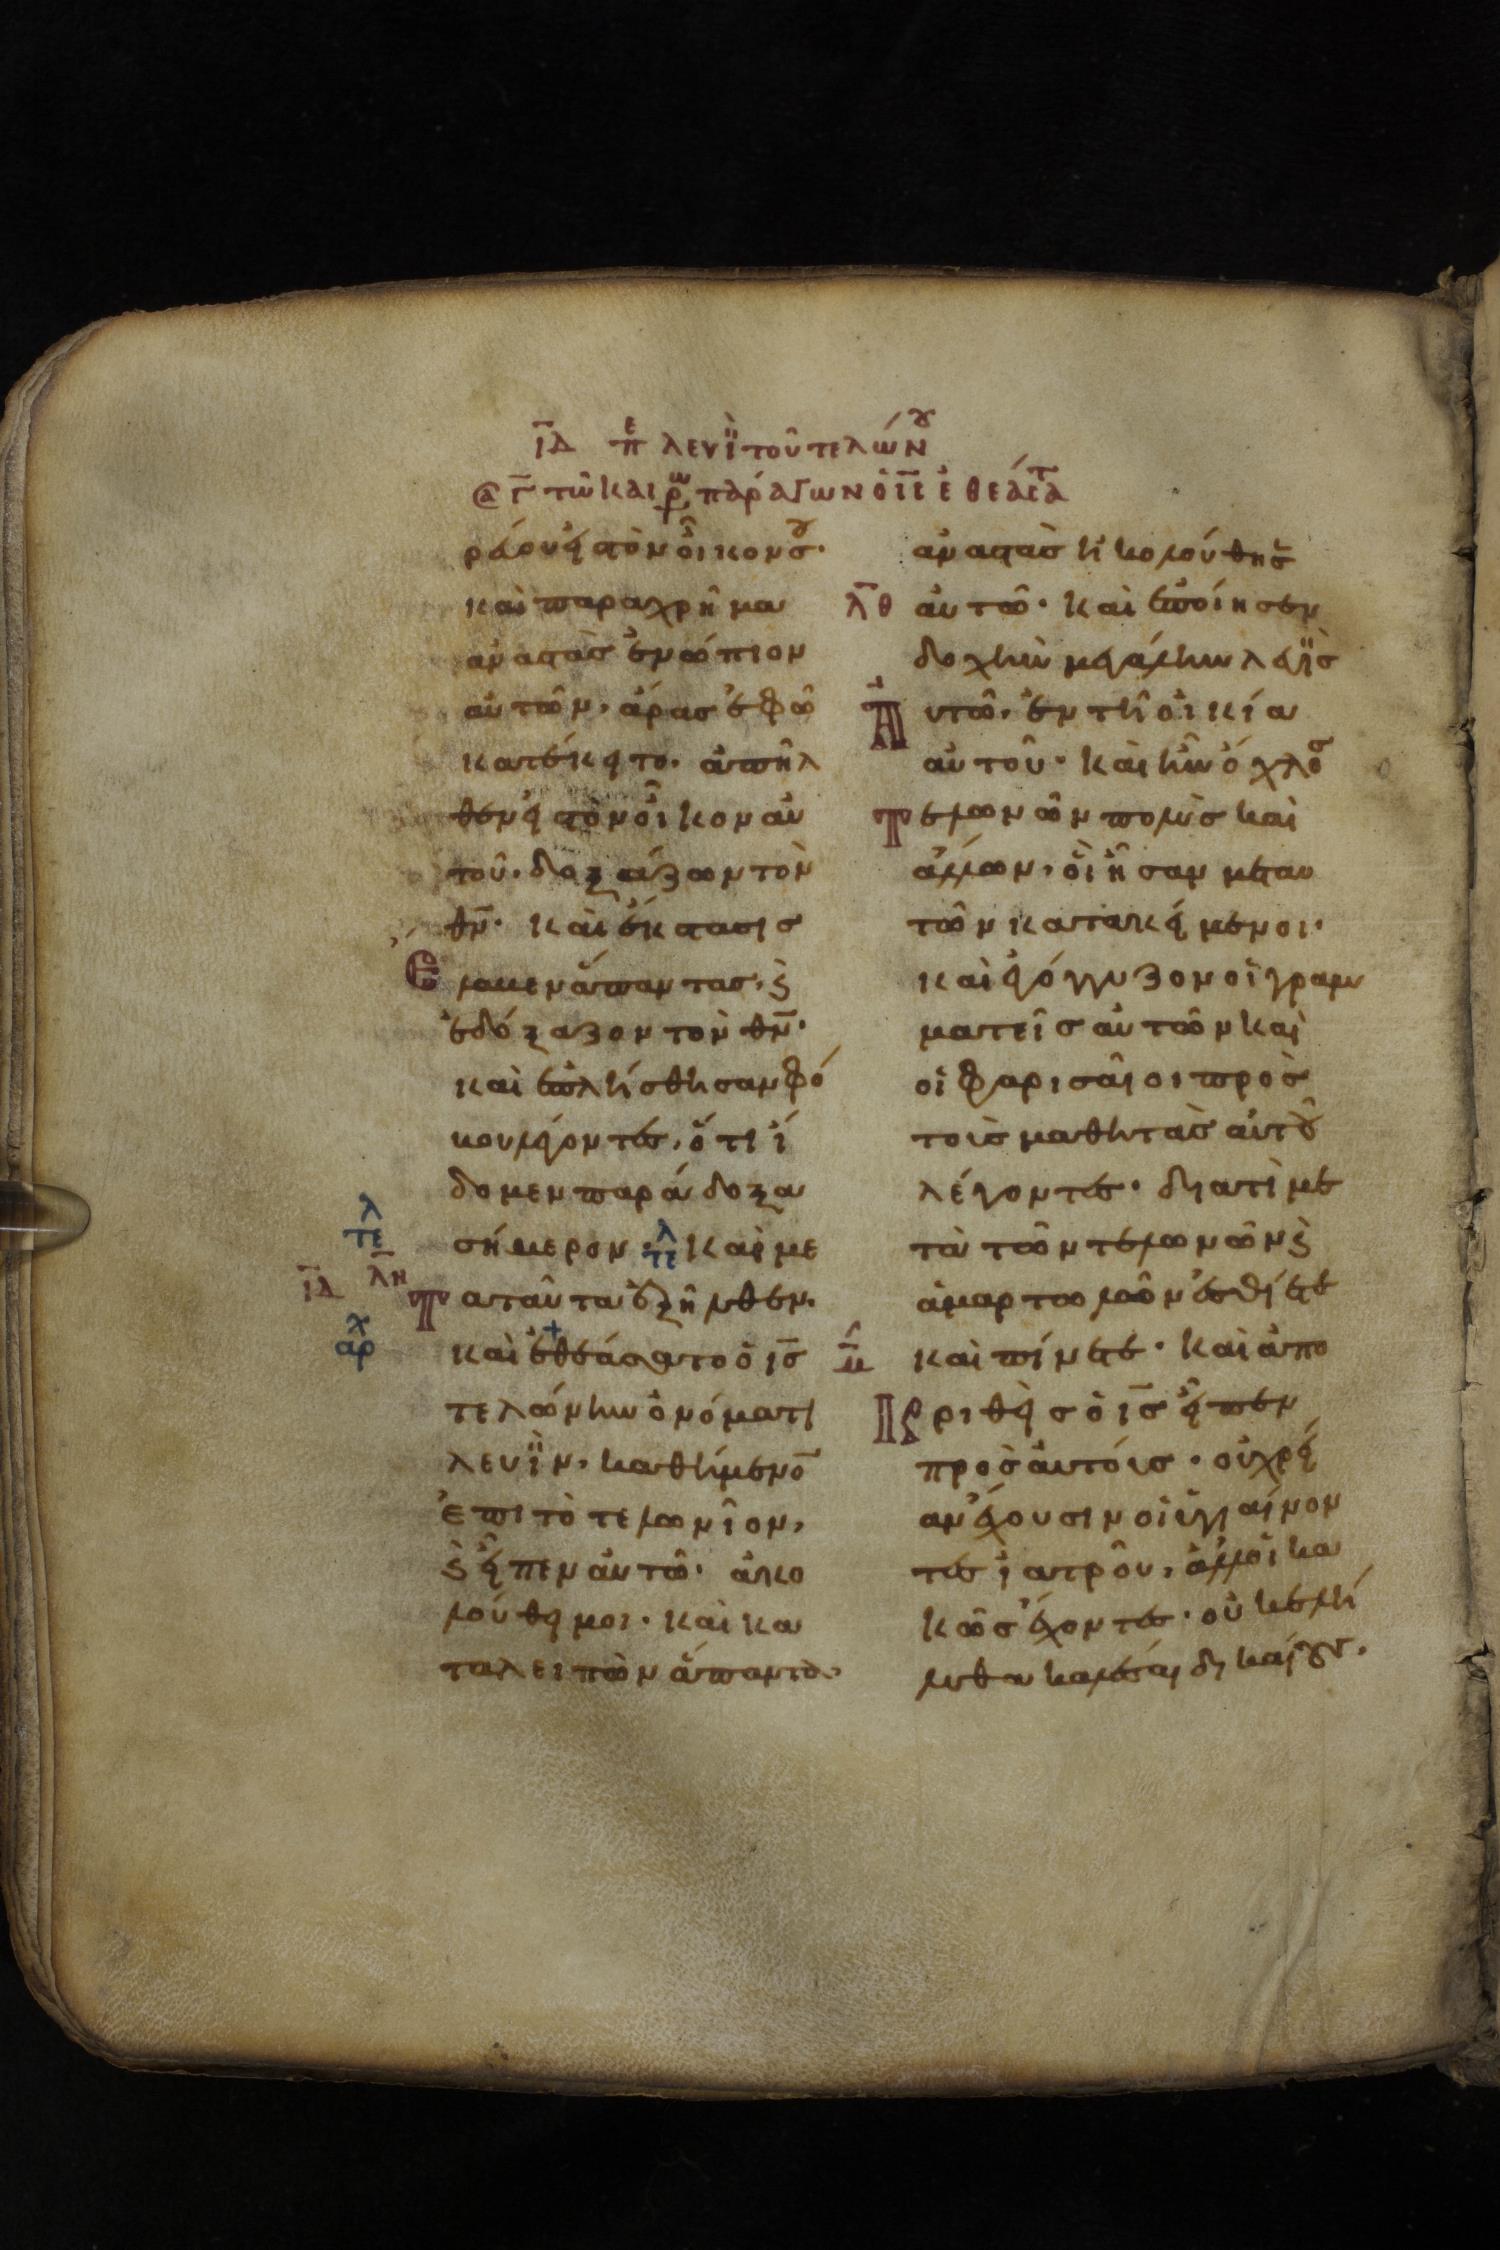 ιδ πε λευὶ τοῦ τελώνου
τῶ καιρῶ παράγων ὁ ις ἐθεάσατ
ρεύου εἰς τὸν οἶκον σου·
καὶ παραχρῆμα
ἀναστὰς ἐνώπιον
αὐτῶν, ἄρας ἐφ ᾧ
κατέκειτο. ἀπῆλ
θεν εἰς τὸν οἶκον αὐ
τοῦ. δοξάζων τὸν
θν̄. καὶ ἔκστασις
Ἔ λαβεν ἅπαντας, καὶ
ἐδόξαζον τὸν θν̄·
καὶ ἐπλήσθησαν φό
βου λέγοντες, ὅτι εἴ
δομεν παράδοξα
λ
τε
σήμερον· τε λ καὶ με
ιδ λη
Τ α ταῦτα ἐξῆλθεν.
αρχ
καὶ + ἐθεάσατο ὁ ις̄
τελώνην ὀνόματι
λευῒν, καθήμενον
ἐπὶ τὸ τελωνῖον,
καὶ εἶπεν αὐτῶ· ἀκο
λούθει μοι. καὶ κα
ταλειπὼν ἅπαντα,
ἀναστὰς ἠκολούθησεν
λθ αὐτῶ. καὶ ἐποίησεν
δοχὴν μεγάλην λευῒς
Ἀ υτῶ, ἐν τῆ οἰκία
αὐτοῦ. καὶ ἦν ὄχλος
Τ ελωνῶν πολὺς καὶ
ἄλλων, οἳ ἦσαν μετ αυ
τῶν κατακείμενοι.
καὶ ἐγόγγυζον οἱ γραμ
ματεῖς αὐτῶν καὶ
οἱ φαρισαῖοι πρὸς
τοὺς μαθητὰς αὐτοῦ
λέγοντες. διατὶ με
τὰ τῶν τελωνῶν καὶ
ἁμαρτωλῶν ἐσθίετε
μ καὶ πίνετε. καὶ ἀπο
Κ ριθεὶς ὁ ις̄ εἶπεν
πρὸς αὐτούς. οὐ χρεί
αν ἔχουσιν οἱ ὑγιαίνον
τες ἰατροῦ, ἀλλ οἱ κα
κῶς ἔχοντες. οὐκ ἐλή
λυθα καλέσαι δικαίους.